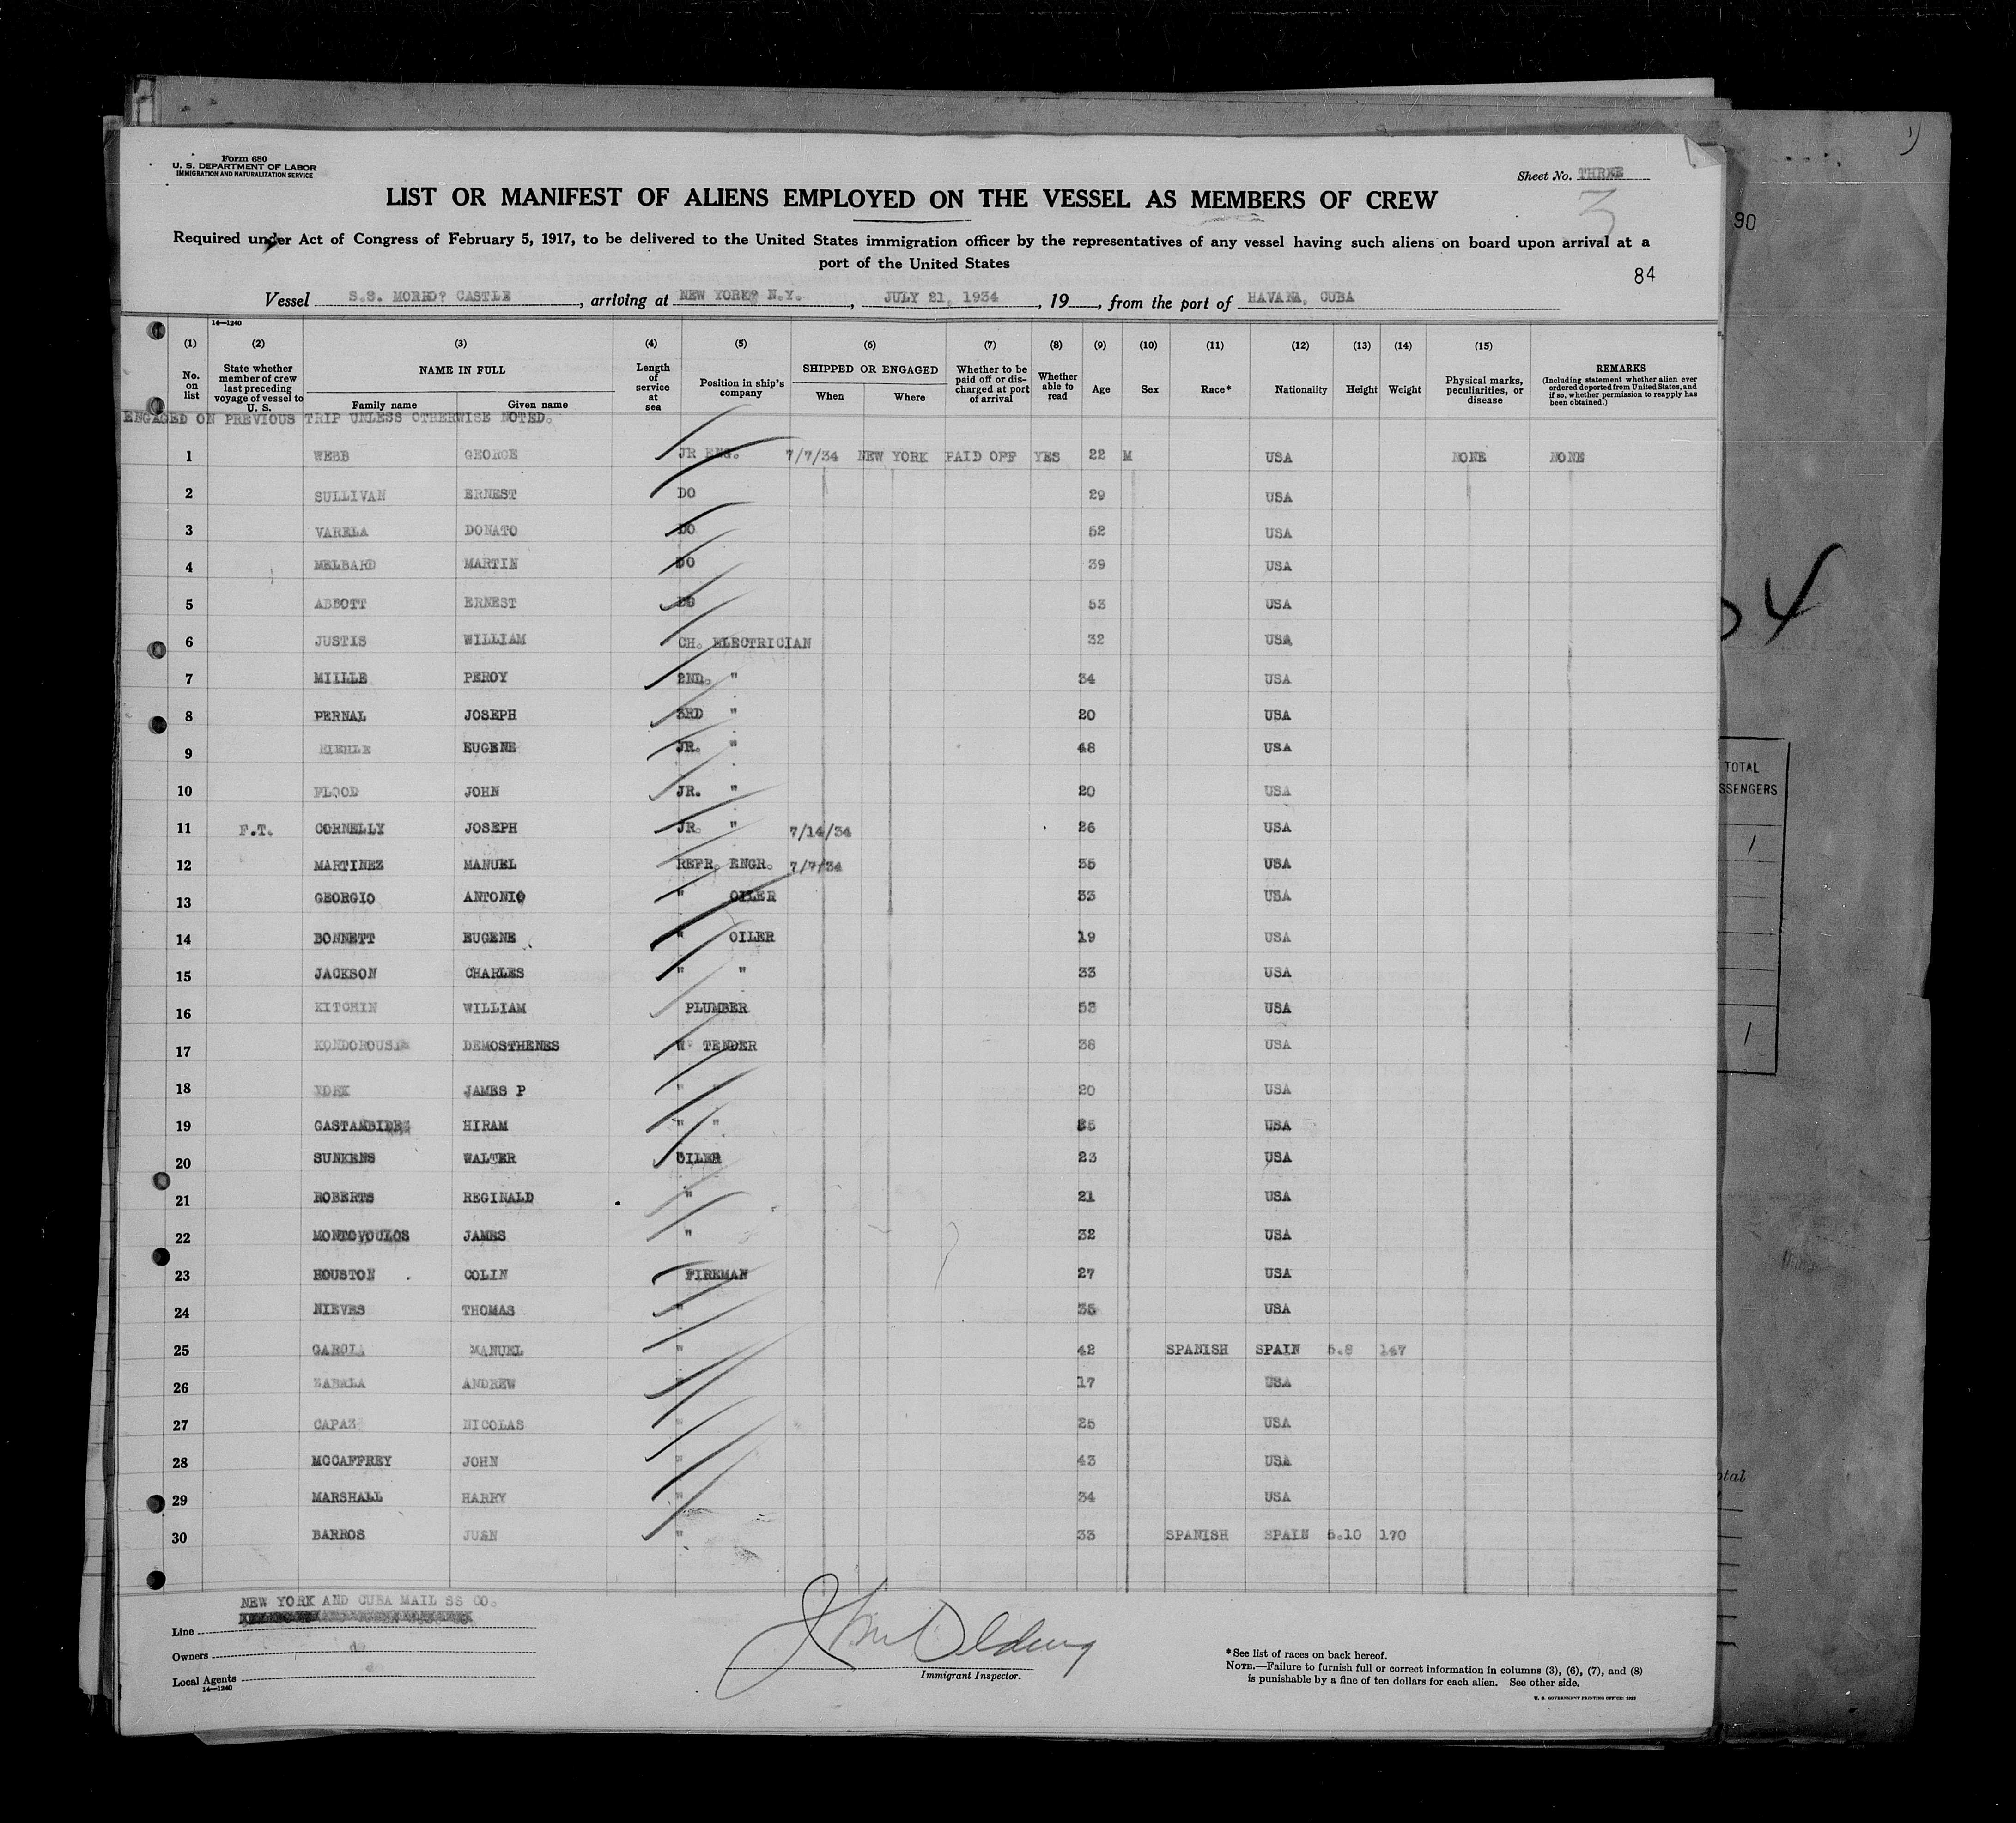 Form 680
U. S. DEPARTMENT OF LABOR
IMMIGRATION AND NATURALIZATION SERVICE
Sheet No. THREE
3
LIST OR MANIFEST OF ALIENS EMPLOYED ON THE VESSEL AS MEMBERS OF CREW
Required under Act of Congress of February 5, 1917, to be delivered to the United States immigration officer by the representatives of any vessel having such aliens on board upon arrival at a
port of the United States
84
90
Vessel S.S. MORRO CASTLE, arriving at NEW YORK, N.Y., JULY 21, 1934, 19, from the port of HAVANA, CUBA
14—1240
(1) (2) (3) (4) (5) (6) (7) (8) (9) (10) (11) (12) (13) (14) (15)
No. on list State whether member of crew last preceding voyage of vessel to U. S. NAME IN FULL Family name Given name Length of service at sea Position in ship's company SHIPPED OR ENGAGED When Where Whether to be paid off or discharged at port of arrival Whether able to read Age Sex Race* Nationality Height Weight Physical marks, peculiarities, or disease REMARKS (Including statement whether alien ever ordered deported from United States, and if so, whether permission to reapply has been obtained.)
ENGAGED ON PREVIOUS TRIP UNLESS OTHERWISE NOTED.
1 WEBB GEORGE JR ENG. 7/7/34 NEW YORK PAID OFF YES 22 M USA NONE NONE
2 SULLIVAN ERNEST DO 29 USA
3 VARELA DONATO DO 52 USA
4 MELBARD MARTIN DO 39 USA
5 ABBOTT ERNEST DO 53 USA
6 JUSTIS WILLIAM CH. ELECTRICIAN 32 USA
7 MIILLE PERCY 2ND. " 34 USA
8 PERNAL JOSEPH 3RD " 20 USA
9 EUGENE JR. " 48 USA
10 FLOOD JOHN JR. " 20 USA
11 F.T. CORNELLY JOSEPH JR. " 7/14/34 26 USA
12 MARTINEZ MANUEL REFR. ENGR. 7/7/34 35 USA
13 GEORGIO ANTONIO " OILER 33 USA
14 BONNETT EUGENE " OILER 19 USA
15 JACKSON CHARLES " " 33 USA
16 KITCHIN WILLIAM PLUMBER 53 USA
17 DEMOSTHENES W. TENDER 38 USA
18 YORK JAMES P " " 20 USA
19 GASTAMBIDE HIRAM " " USA
20 SUNKENS WALTER OILER 23 USA
21 ROBERTS REGINALD " 21 USA
22 MONTOVOULOS JAMES " 32 USA
23 HOUSTON COLIN FIREMAN 27 USA
24 NIEVES THOMAS " USA
25 GARCIA MANUEL " 42 SPANISH SPAIN 5.8 147
26 ZABALA ANDREW " 17 USA
27 CAPAZ NICOLAS " 25 USA
28 MCCAFFREY JOHN " 43 USA
29 MARSHALL HARRY " 34 USA
30 BARROS JUAN " 33 SPANISH SPAIN 5.10 170
TOTAL
SSENGERS
1
1
NEW YORK AND CUBA MAIL SS CO.
Line
Owners do
Local Agents do
14—1240
Immigrant Inspector.
*See list of races on back hereof.
NOTE.—Failure to furnish full or correct information in columns (3), (6), (7), and (8)
is punishable by a fine of ten dollars for each alien. See other side.
U. S. GOVERNMENT PRINTING OFFICE: 1932